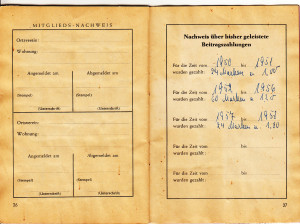 MITGLIEDS-NACHWEIS
Ortsverein:
Wohnung:
Angemeldet am
Abgemeldet am
(Stempel)
(Stempel)
(Unterschrift)
(Unterschrift)
Ortsverein:
Wohnung:
Angemeldet am
Abgemeldet am
(Stempel)
(Stempel)
(Unterschrift)
(Unterschrift)
26
Nachweis über bisher geleistete
Beitragszahlungen
Für die Zeit vom 1950 bis 1951
wurden gezahlt: 24 Marken u. 1.00
Für die Zeit vom 1952 bis 1956
wurden gezahlt: 60 Marken u.
Für die Zeit vom 1957 bis 1958
wurden gezahlt: 24 Marken u. 1.20
Für die Zeit vom bis
wurden gezahlt:
Für die Zeit vom bis
wurden gezahlt:
27